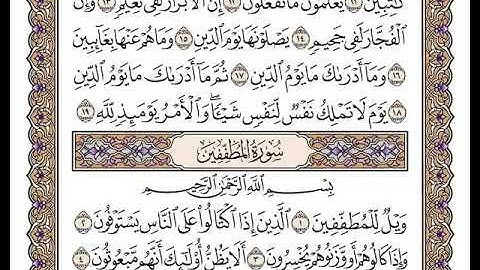 كَٰتِبِينَ ١١ يَعْلَمُونَ مَا تَفْعَلُونَ ١٢ إِنَّ ٱلْأَبْرَارَ لَفِى نَعِيمٍ ١٣ وَإِنَّ
ٱلْفُجَّارَ لَفِى جَحِيمٍ ١٤ يَصْلَوْنَهَا يَوْمَ ٱلدِّينِ ١٥ وَمَا هُمْ عَنْهَا بِغَآئِبِينَ
١٦ وَمَآ أَدْرَىٰكَ مَا يَوْمُ ٱلدِّينِ ١٧ ثُمَّ مَآ أَدْرَىٰكَ مَا يَوْمُ ٱلدِّينِ
١٨ يَوْمَ لَا تَمْلِكُ نَفْسٌ لِّنَفْسٍ شَيْـًٔا ۖ وَٱلْأَمْرُ يَوْمَئِذٍ لِّلَّهِ ١٩
سُورَةُ المُطَفِّفِينَ
بِسْمِ ٱللَّهِ ٱلرَّحْمَٰنِ ٱلرَّحِيمِ
وَيْلٌ لِّلْمُطَفِّفِينَ ١ ٱلَّذِينَ إِذَا ٱكْتَالُوا۟ عَلَى ٱلنَّاسِ يَسْتَوْفُونَ ٢
وَإِذَا كَالُوهُمْ أَو وَّزَنُوهُمْ يُخْسِرُونَ ٣ أَلَا يَظُنُّ أُو۟لَٰٓئِكَ أَنَّهُم مَّبْعُوثُونَ ٤